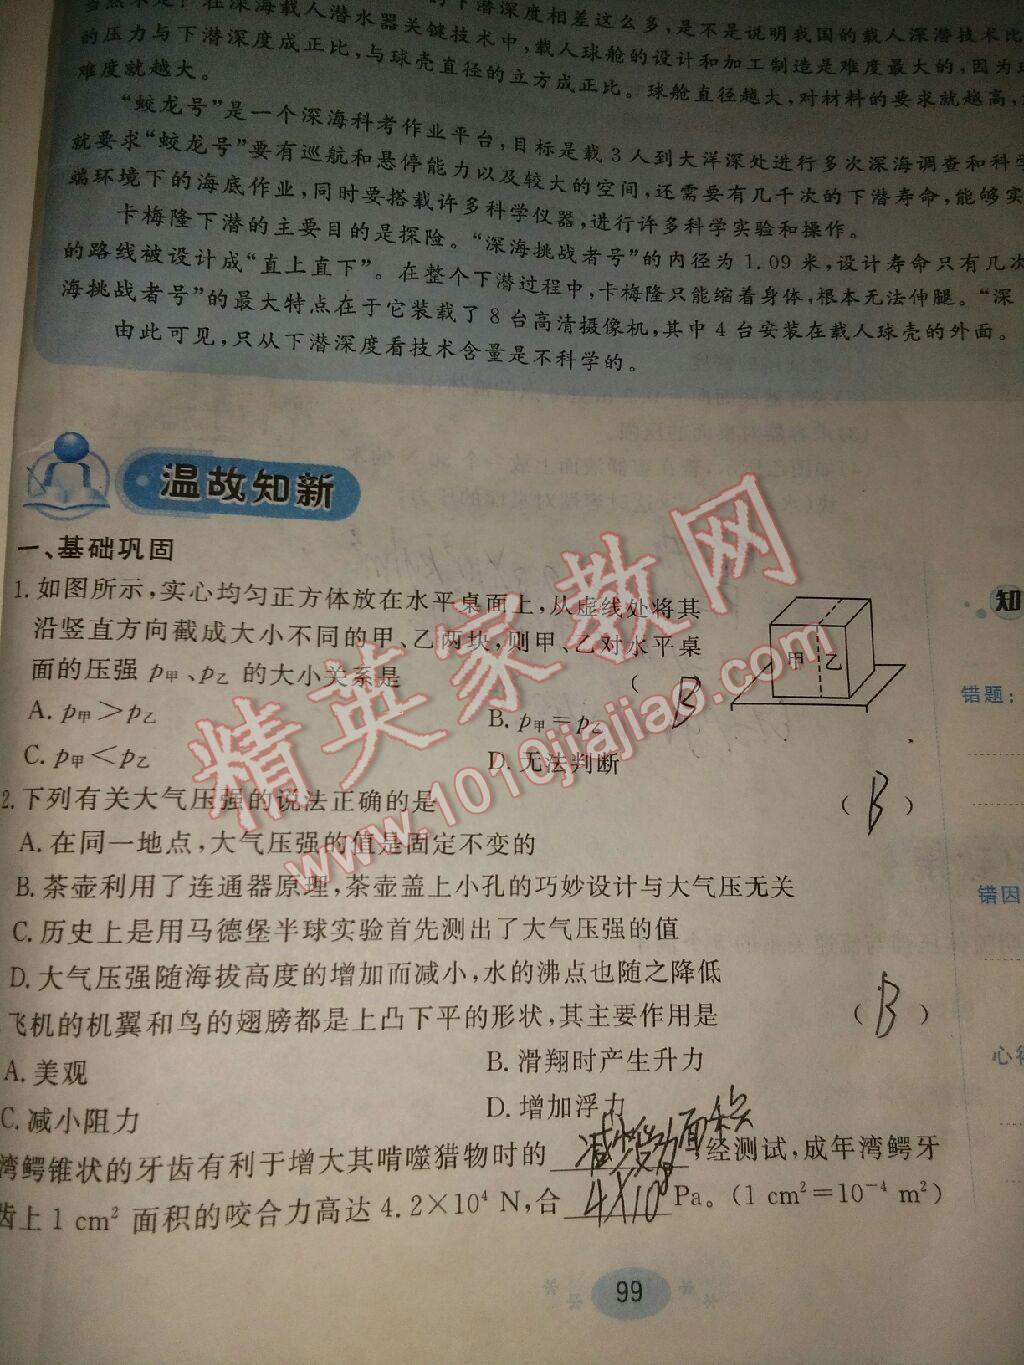 当然不是！在深海载人潜水器关键技术中，载人球舱的设计和加工制造是难度最大的，因为球
的下潜深度相差这么多，是不是说明我国的载人深潜技术比
的压力与下潜深度成正比，与球壳直径的立方成正比。球舱直径越大，对材料的要求就越高，
难度就越大。
“蛟龙号”是一个深海科考作业平台，目标是载3人到大洋深处进行多次深海调查和科学
就要求“蛟龙号”要有巡航和悬停能力以及较大的空间，还需要有几千次的下潜寿命，能够实
端环境下的海底作业，同时要搭载许多科学仪器，进行许多科学实验和操作。
卡梅隆下潜的主要目的是探险。“深海挑战者号”的内径为1.09米，设计寿命只有几次
的路线被设计成“直上直下”。在整个下潜过程中，卡梅隆只能缩着身体，根本无法伸腿。“深
海挑战者号”的最大特点在于它装载了8台高清摄像机，其中4台安装在载人球壳的外面。
由此可见，只从下潜深度看技术含量是不科学的。
温故知新
一、基础巩固
1.如图所示，实心均匀正方体放在水平桌面上，从虚线处将其
沿竖直方向截成大小不同的甲、乙两块，则甲、乙对水平桌
面的压强 p甲、p乙 的大小关系是 （ B
A. p甲＞p乙 B. p甲＝p乙
C. p甲＜p乙 D. 无法判断
甲 乙
2.下列有关大气压强的说法正确的是 （ B ）
A. 在同一地点，大气压强的值是固定不变的
B. 茶壶利用了连通器原理，茶壶盖上小孔的巧妙设计与大气压无关
C. 历史上是用马德堡半球实验首先测出了大气压强的值
D. 大气压强随海拔高度的增加而减小，水的沸点也随之降低
飞机的机翼和鸟的翅膀都是上凸下平的形状，其主要作用是 （ B ）
A. 美观 B. 滑翔时产生升力
C. 减小阻力 D. 增加浮力
湾鳄锥状的牙齿有利于增大其啃噬猎物时的 减少受力面积 ，经测试，成年湾鳄牙
齿上1 cm² 面积的咬合力高达4.2×10⁴ N，合 4×10⁸ Pa。（1 cm²＝10⁻⁴ m²）
99
知
错题：
错因
心得
精英家教网
www.1010jiajiao.com